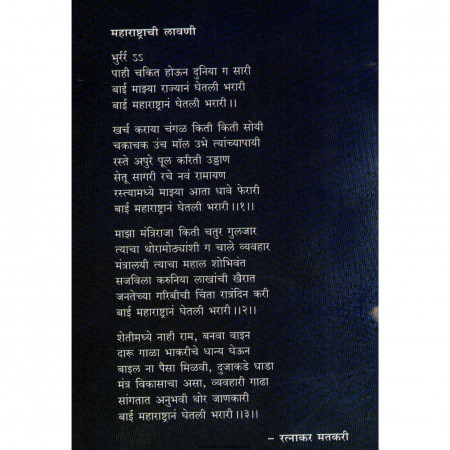 महाराष्ट्राची लावणी
भुर्रर्र ऽऽ
पाही चकित होऊन दुनिया ग सारी
बाई माझ्या राज्यानं घेतली भरारी
बाई महाराष्ट्रानं घेतली भरारी।।
खर्च कराया चंगळ किती किती सोयी
चकाचक उंच मॉल उभे त्यांच्यापायी
रस्ते अपुरे पूल करिती उड्डाण
सेतू सागरी रचे नवं रामायण
रस्त्यामध्ये माझ्या आता धावे फेरारी
बाई महाराष्ट्रानं घेतली भरारी।।१।।
माझा मंत्रिराजा किती चतुर गुलजार
त्याचा थोरामोठ्यांशी ग चाले व्यवहार
मंत्रालयी त्याचा महाल शोभिवंत
सजविला करुनिया लाखांची खैरात
जनतेच्या गरिबीची चिंता रात्रंदिन करी
बाई महाराष्ट्रानं घेतली भरारी।।२।।
शेतीमध्ये नाही राम, बनवा वाइन
दारू गाळा भाकरीचे धान्य घेऊन
बाइल ना पैसा मिळवी, दुजाकडे धाडा
मंत्र विकासाचा असा, व्यवहारी गाढा
सांगतात अनुभवी थोर जाणकारी
बाई महाराष्ट्रानं घेतली भरारी।।३।।
– रत्नाकर मतकरी